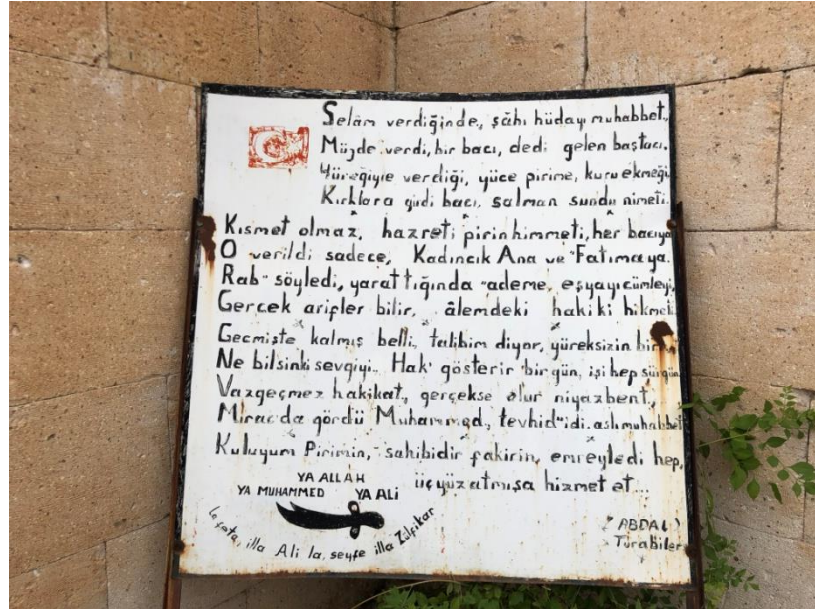 Selâm verdiğinde,, şâhı hüdayı muhabbet.,
Müjde verdi, bir bacı, dedi gelen baştacı.
Yüreğiyle verdiği, yüce pirime, kuru ekmeği
Kırklara gidi bacı, salman sundu nimeti.
Kısmet olmaz, hazreti pirin himmeti, her bacıya
O verildi sadece, Kadıncık Ana ve "Fatımaya.
Rab" söyledi, yarattığında "ademe, eşyayı cümleyi,
Gerçek arifler bilir, âlemdeki hakiki hikmet
Geçmişte kalmış belli, talibim diyor, yüreksizin biri
Ne bilsinki sevgiyi.. Hak' gösterir bir gün, işi hep sürgün
Vazgeçmez hakikat, gerçekse olur niyazbent.,
Mirac'da gördü Muhammed., tevhid"idi. aslı muhabbet
Kuluyum Pirimin, sahibidir fakirin, emreyledi hep,
üçyüzatmışa hizmet et...
YA ALLAH
YA MUHAMMED YA ALİ
Le feta, illa Ali la, seyfe illa Zülfikar
(ABDAL)
Turabiler